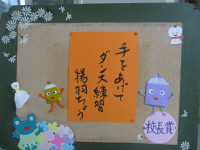 手をあげて
ダンス練習
揚羽ちょう
校長賞